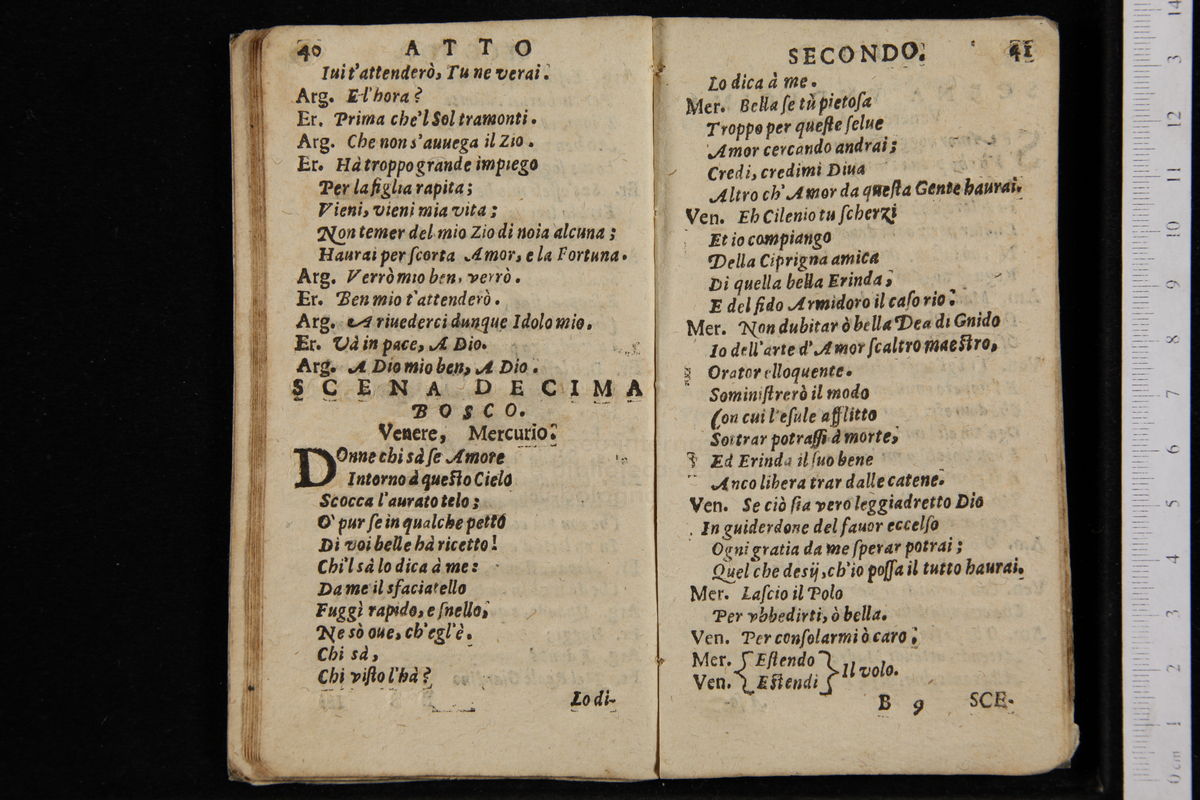 40 ATTO
Iui t'attenderò, Tu ne verai.
Arg. E l'hora?
Er. Prima che'l Sol tramonti.
Arg. Che non s'auuega il Zio.
Er. Hà troppo grande impiego
Per la figlia rapita;
Vieni, vieni mia vita;
Non temer del mio Zio di noia alcuna;
Haurai per scorta Amor, e la Fortuna.
Arg. Verrò mio ben, verrò.
Er. Ben mio t'attenderò.
Arg. A riuederci dunque Idolo mio.
Er. Và in pace, A Dio.
Arg. A Dio mio ben, A Dio.
SCENA DECIMA
BOSCO.
Venere, Mercurio.
DOnne chi sà se Amore
Intorno à questo Cielo
Scocca l'aurato telo;
O' pur se in qualche petto
Di voi belle hà ricetto!
Chi'l sà lo dica à me:
Da me il sfaciatello
Fuggì rapido, e snello,
Ne sò oue, ch'egl'è.
Chi sà,
Chi visto l'hà?
Lo di-
SECONDO. 41
Lo dica à me.
Mer. Bella se tù pietosa
Troppo per queste selue
Amor cercando andrai;
Credi, credimi Diua
Altro ch'Amor da questa Gente haurai.
Ven. Eh Cilenio tu scherzi
Et io compiango
Della Ciprigna amica
Di quella bella Erinda,
E del fido Armidoro il caso rio.
Mer. Non dubitar ò bella Dea di Gnido
Io dell'arte d'Amor scaltro maestro,
Orator elloquente.
Soministrerò il modo
Con cui l'esule afflitto
Sottrar potrassi à morte,
Ed Erinda il suo bene
Anco libera trar dalle catene.
Ven. Se ciò sia vero leggiadretto Dio
In guiderdone del fauor eccelso
Ogni gratia da me sperar potrai;
Quel che desij, ch'io possa il tutto haurai.
Mer. Lascio il Polo
Per vbbedirti, ò bella.
Ven. Per consolarmi ò caro,
Mer. Estendo
Il volo.
Ven. Estendi
B 9 SCE-